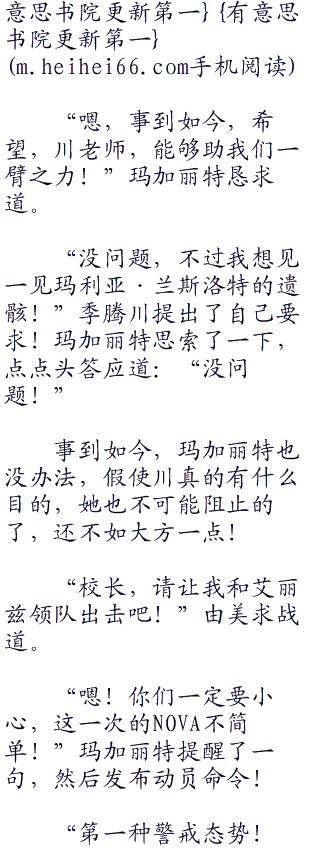 意思书院更新第一} {有意思
书院更新第一}
(m.heihei66.com手机阅读)
“嗯，事到如今，希
望，川老师，能够助我们一
臂之力！”玛加丽特恳求
道。
“没问题，不过我想见
一见玛利亚·兰斯洛特的遗
骸！”季腾川提出了自己要
求！玛加丽特思索了一下，
点点头答应道：“没问
题！”
事到如今，玛加丽特也
没办法，假使川真的有什么
目的，她也不可能阻止的
了，还不如大方一点！
“校长，请让我和艾丽
兹领队出击吧！”由美求战
道。
“嗯！你们一定要小
心，这一次的NOVA不简
单！”玛加丽特提醒了一
句，然后发布动员命令！
“第一种警戒态势！